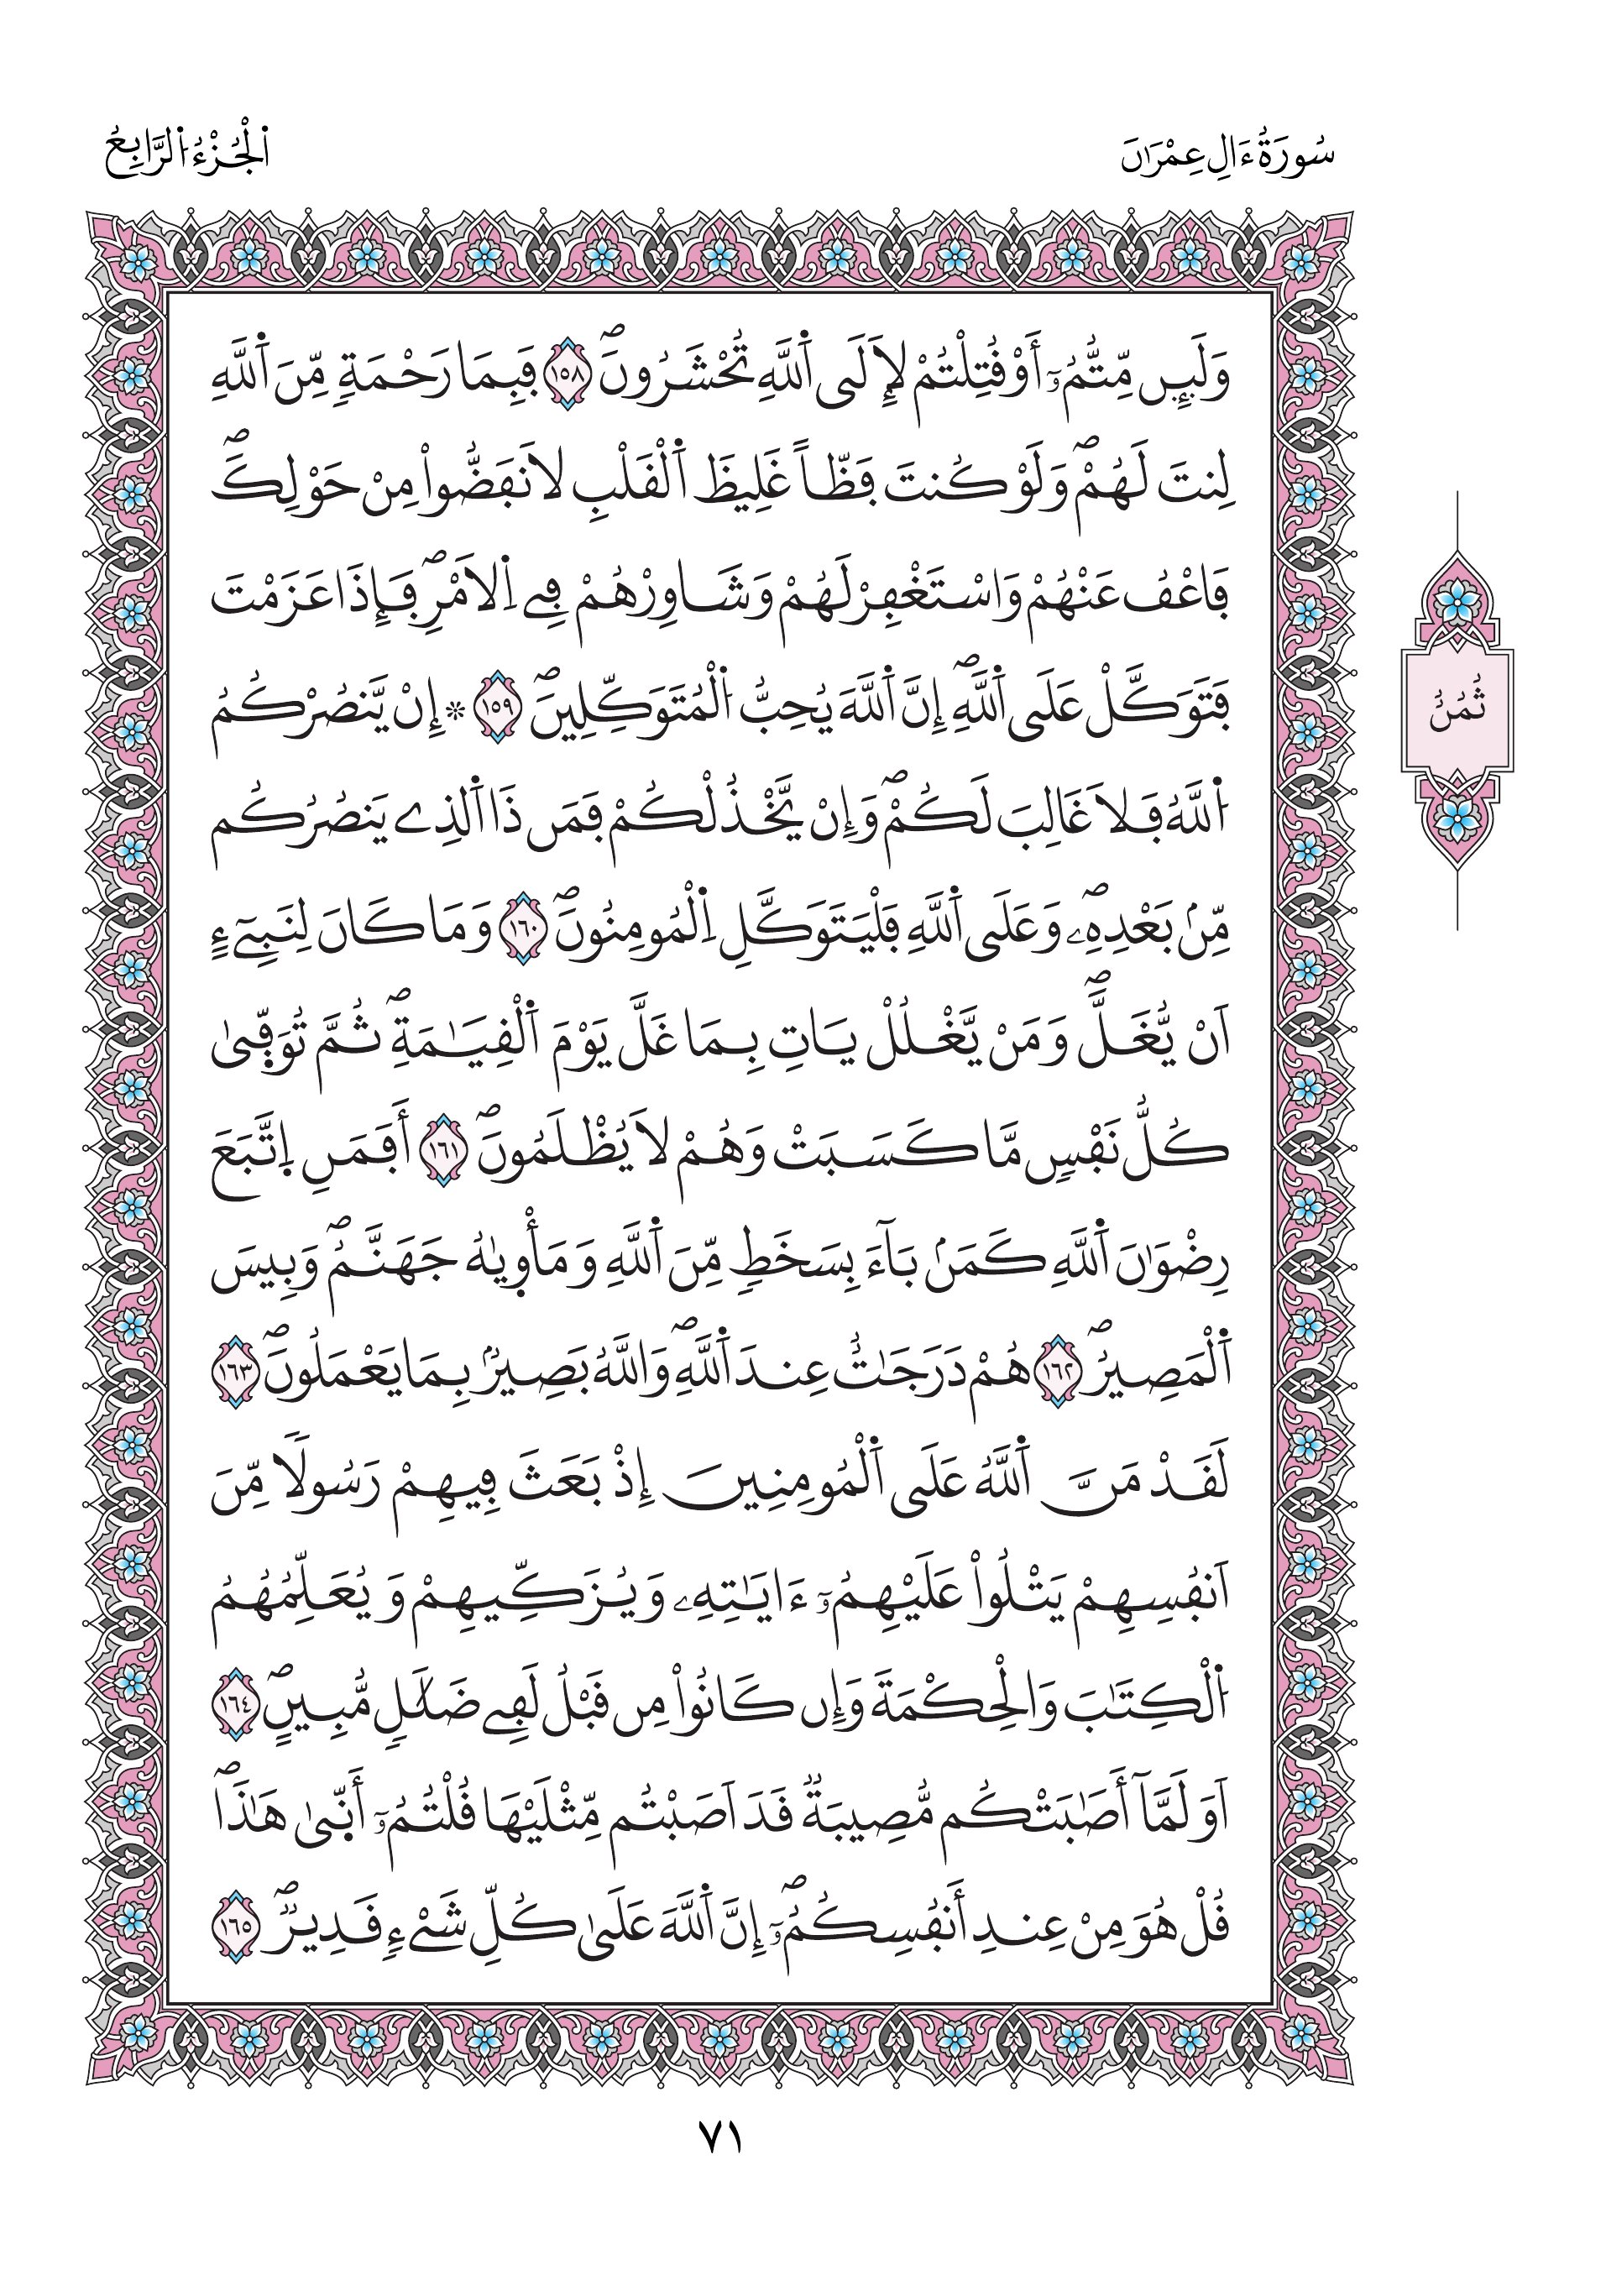 سُورَةُ ءَالِ عِمْرَٰنَ
اَ۬لْجُزْءُ اُ۬لرَّابِعُ
وَلَئِن مِّتُّمُۥٓ أَوْ قُتِلْتُمْ لَإِلَى اَ۬للَّهِ تُحْشَرُونَۖ ١٥٨ فَبِمَا رَحْمَةٖ مِّنَ اَ۬للَّهِ
لِنتَ لَهُمْۖ وَلَوْ كُنتَ فَظّاً غَلِيظَ اَ۬لْقَلْبِ لَانفَضُّواْ مِنْ حَوْلِكَۖ
فَاعْفُ عَنْهُمْ وَاسْتَغْفِرْ لَهُمْ وَشَاوِرْهُمْ فِے اِ۬لَامْرِۖ فَإِذَا عَزَمْتَ
فَتَوَكَّلْ عَلَى اَ۬للَّهِۖ إِنَّ اَ۬للَّهَ يُحِبُّ اُ۬لْمُتَوَكِّلِينَۖ ١٥٩ ۞ إِنْ يَّنصُرْكُمُ
اُ۬للَّهُ فَلَا غَالِبَ لَكُمْۖ وَإِنْ يَّخْذُلْكُمْ فَمَن ذَا اَ۬لذِے يَنصُرُكُم
مِّنۢ بَعْدِهِۦۖ وَعَلَى اَ۬للَّهِ فَلْيَتَوَكَّلِ اِ۬لْمُومِنُونَۖ ١٦٠ وَمَا كَانَ لِنَبِےٓءٍ
اَنْ يُّغَلَّۖ وَمَنْ يَّغْلُلْ يَاتِ بِمَا غَلَّ يَوْمَ اَ۬لْقِيَٰمَةِۖ ثُمَّ تُوَفّ۪ىٰ
كُلُّ نَفْسٖ مَّا كَسَبَتْ وَهُمْ لَا يُظْلَمُونَۖ ١٦١ أَفَمَنِ اِ۪تَّبَعَ
رِضْوَٰنَ اَ۬للَّهِ كَمَنۢ بَآءَ بِسَخَطٖ مِّنَ اَ۬للَّهِ وَمَأْو۪يٰهُ جَهَنَّمُۖ وَبِيسَ
اَ۬لْمَصِيرُۖ ١٦٢ هُمْ دَرَجَٰتٌ عِندَ اَ۬للَّهِۖ وَاللَّهُ بَصِيرُۢ بِمَا يَعْمَلُونَۖ ١٦٣
لَقَدْ مَنَّ اَ۬للَّهُ عَلَى اَ۬لْمُومِنِينَ إِذْ بَعَثَ فِيهِمْ رَسُولٗا مِّنَ
اَنفُسِهِمْ يَتْلُواْ عَلَيْهِمُۥٓ ءَايَٰتِهِۦ وَيُزَكِّيهِمْ وَيُعَلِّمُهُمُ
اُ۬لْكِتَٰبَ وَالْحِكْمَةَ وَإِن كَانُواْ مِن قَبْلُ لَفِے ضَلَٰلٖ مُّبِينٍۖ ١٦٤
اَوَلَمَّآ أَصَٰبَتْكُم مُّصِيبَةٞ قَدَ اَصَبْتُم مِّثْلَيْهَا قُلْتُمُۥٓ أَنّ۪ىٰ هَٰذَاۖ
قُلْ هُوَ مِنْ عِندِ أَنفُسِكُمُۥٓۖ إِنَّ اَ۬للَّهَ عَلَىٰ كُلِّ شَےْءٖ قَدِيرٞۖ ١٦٥
ثُمُنُ
٧١